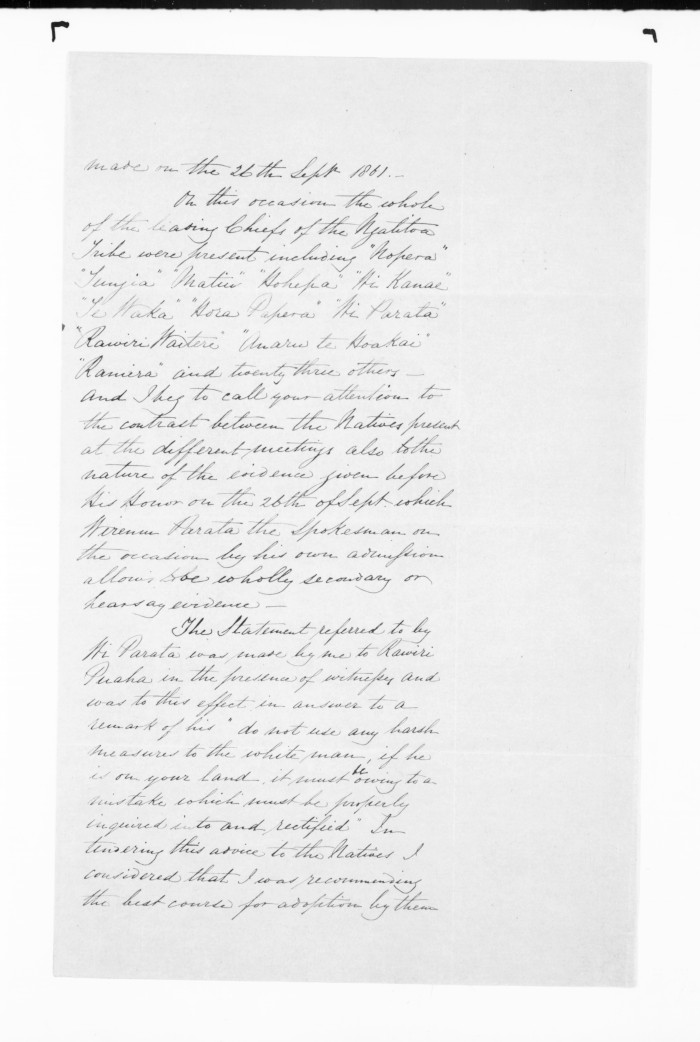 made on the 26th Septr 1861.-
On this occasion the whole
of the leading Chiefs of the Ngatitoa
Tribe were present including "Nopera"
"Tungia" "Matiu" "Hohepa" "Wi Kanae"
"Te Waka" "Hora Papera" "Wi Parata"
"Rawiri Waitere" "Anaru te Hoakai"
"Ramera" and twenty three others -
and I beg to call your attention to
the contrast between the Natives present
at the different meetings also to the
nature of the evidence given before
His Honor on the 26th of Sept. which
Wiremu Parata the Spokesman on
the occasion by his own admission
allows to be wholly secondary or
hearsay evidence -
The Statement referred to by
Wi Parata was made by me to Rawiri
Puaha in the presence of witnesses and
was to this effect in answer to a
remark of his "do not use any harsh
measures to the white man, if he
is on your land, it must be owing to a
mistake which must be properly
inquired into and rectified" In
tendering this advice to the Natives I
considered that I was recommending
the best course for adoption by them